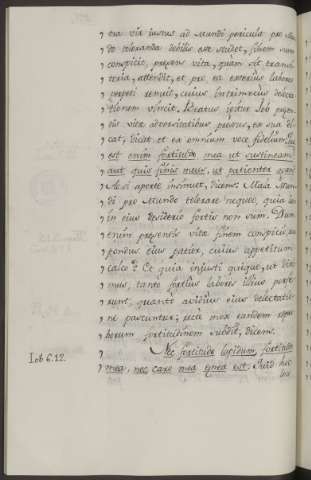 " era vir iustus ad Mundi pericula pro
" do toleranda debilis esse studet, finem suum
" conspicit, præsens vita, quàm sit transi
" toria, attendit, et pro ea exterius labores
" perpeti renuit, cuius intrinsecus delecta
" tionem vincit. Beatus igitur Iob præsen
" tis vitæ adversitatibus pressus, ex sua di
" cat, dicat et ex omnium voce fidelium.
" est enim fortitudo mea ut sustineam?
" aut quis finis meus, ut patienter agam?
" Ac si apertè insinuet, dicens: Mala Mun
" di pro Mundo tolerare nequeo, quia iam
" in eius desiderio fortis non sum. Dum
" enim præsentis vitæ finem conspicio,
" pondus eius patior, cuius appetitum
" calco? Et quia iniusti quique, ut dixi
" mus, tantò fortiùs labores illius perfe
" runt, quantò avidiùs eius delectatio
" ne pascuntur; rectè mox eandem
" borum fortitudinem subdit, dicens.
Iob 6. 12. " Nec fortitudo lapidum, fortitudo
" mea, nec caro mea ænea est. Quid hic